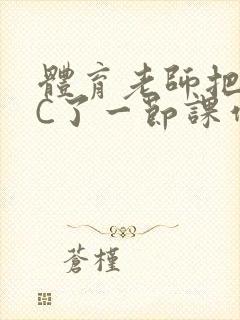 體育老師把
C了一節課
蒼槿